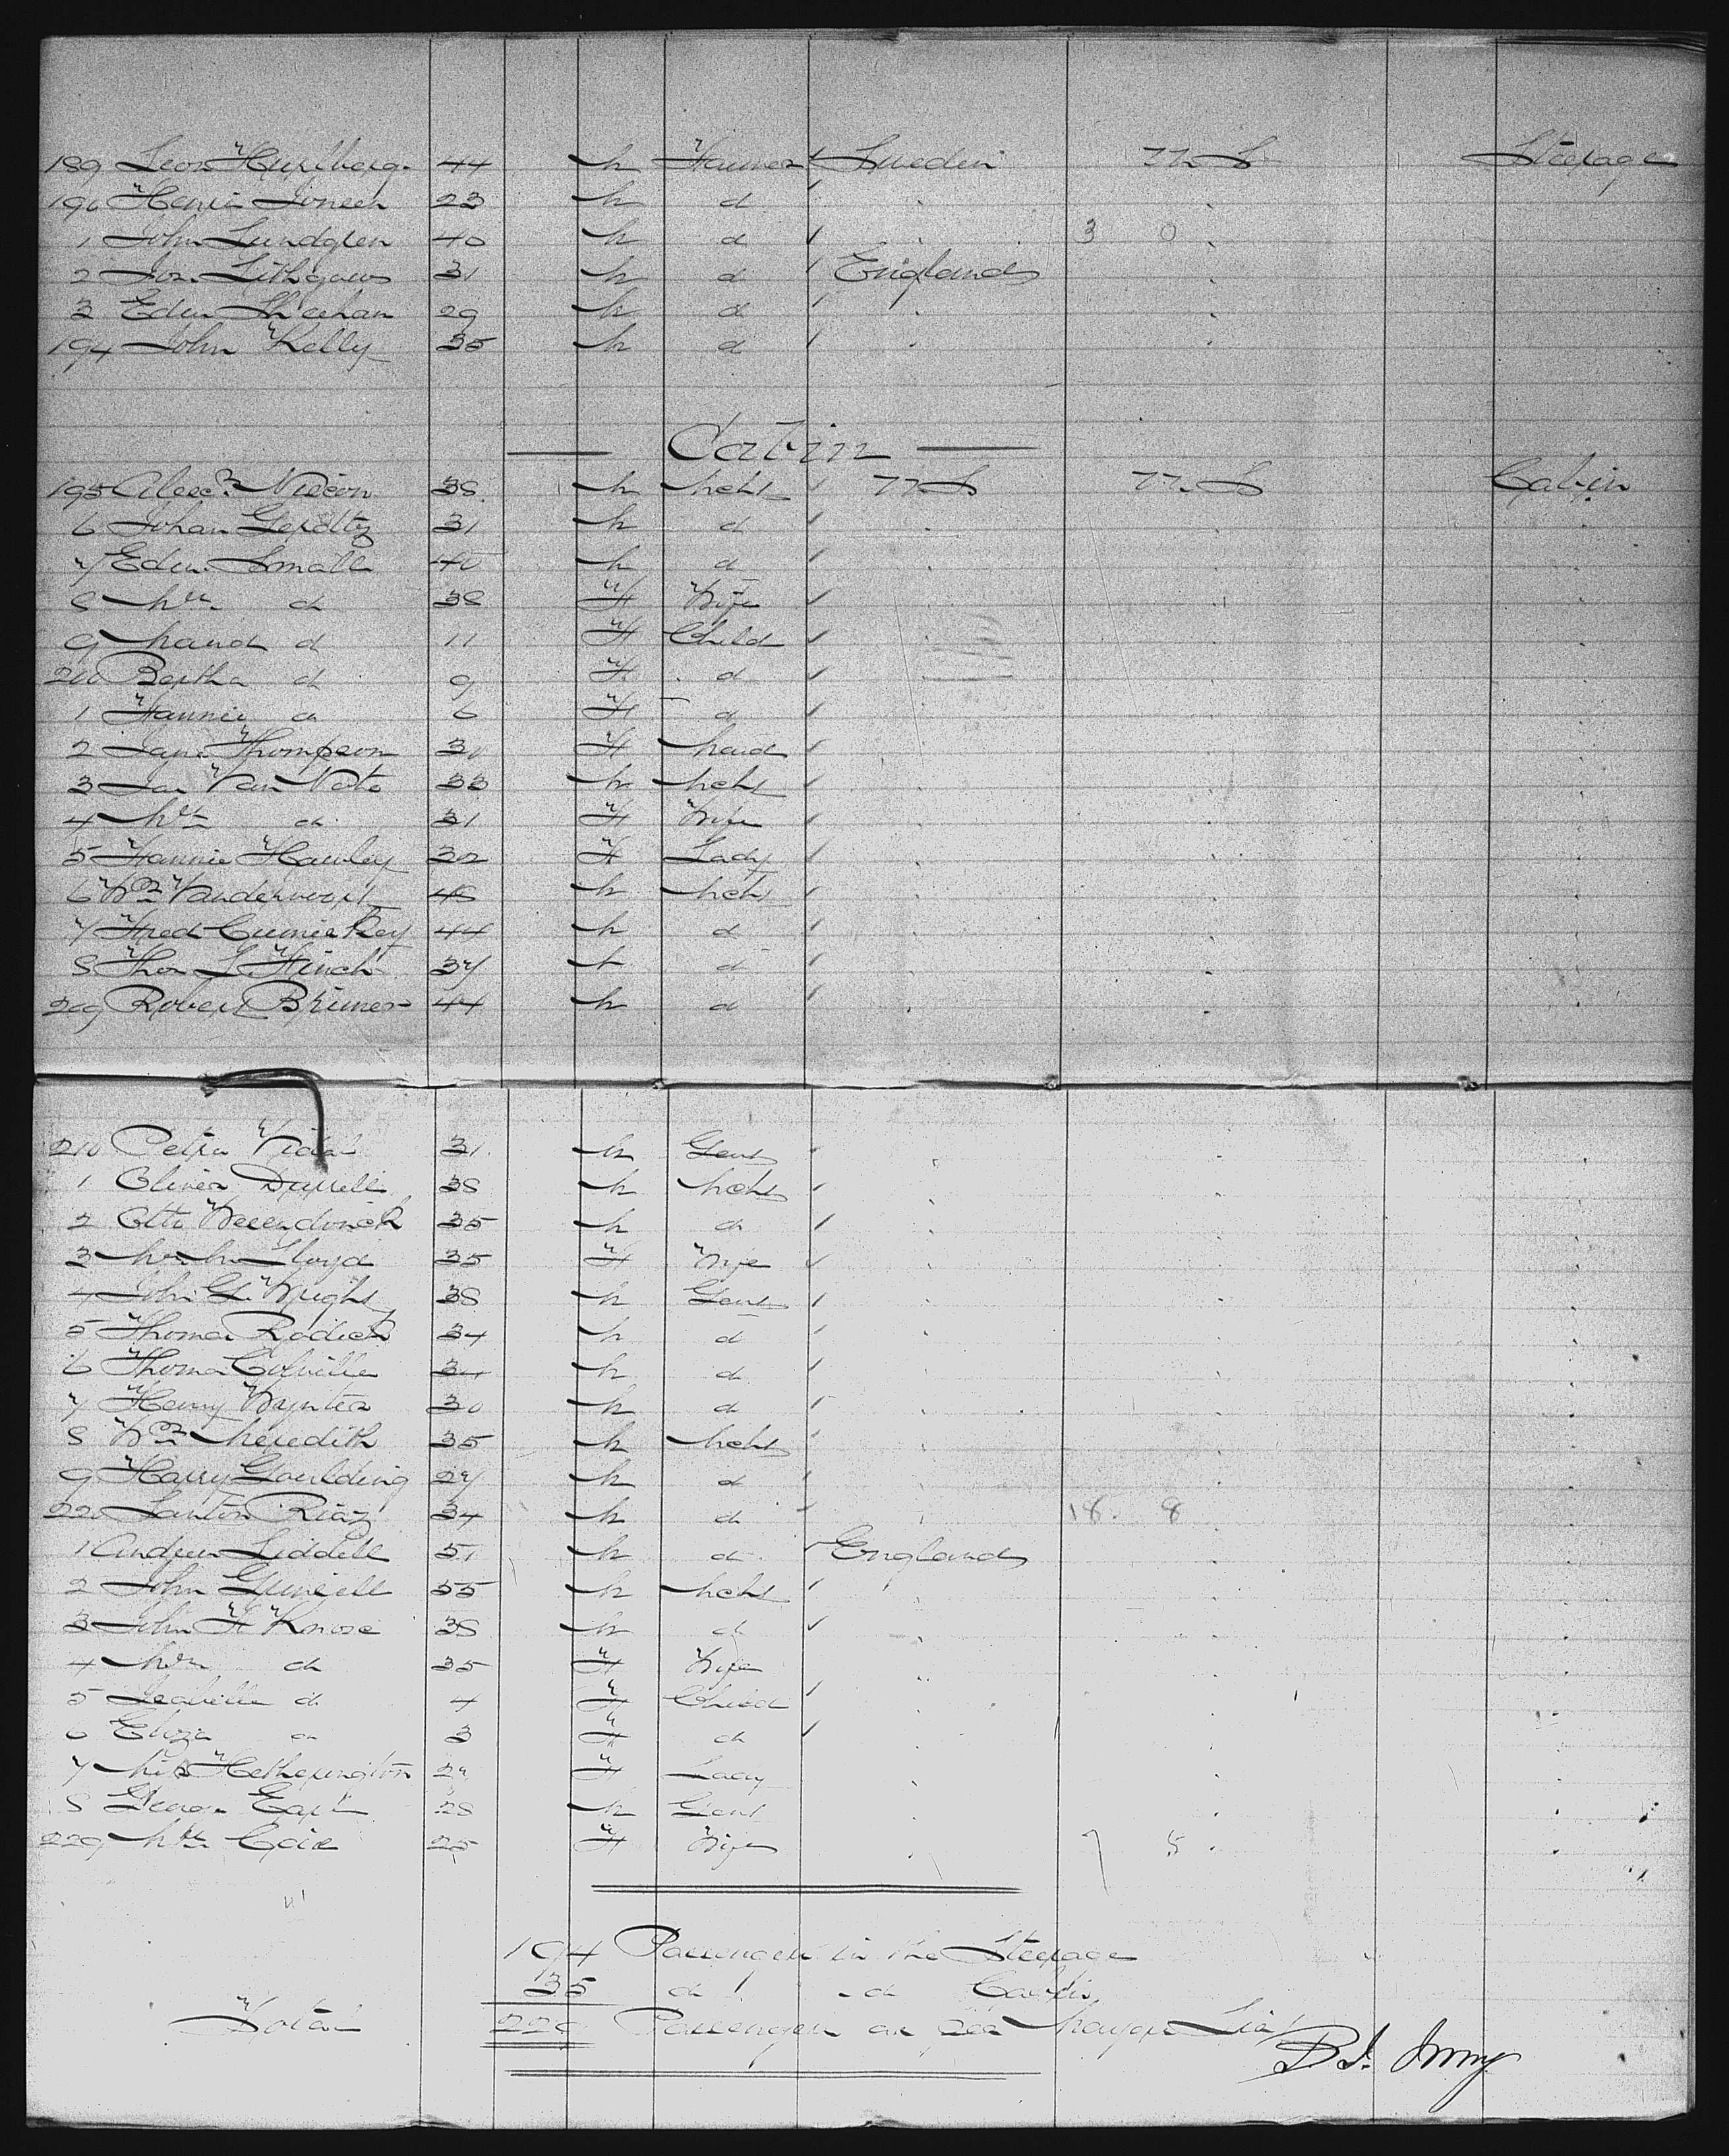 189 44 m Farmer Sweden U. S. Steerage
190 Henri 23 m d
1 John Lundgren 40 m d 3 0
2 Jos. Lithgows 31 m d England
3 Edw. Sheehan 29 m d
194 John Kelly 35 m d
Cabin
195 Alexr. Nixon 38 m Mcht U. S. U. S. Cabin
6 Johan 31 m d
7 Edw. Small 40 m d
8 Mrs. d 38 F Wife
9 Maud d 11 F Child
200 Bertha d 9 F d
1 Fannie d 6 F d
2 Jane Thompson 30 F Maid
3 Van 33 m Mcht
4 Mrs d 31 F Wife
5 Fannie Hawley 32 F Lady
6 Wm Vandervoort 48 m Mcht
7 Fred 44 m d
8 Thos L. Finch 37 m d
209 Robert 44 m d
210 Vidal 31 m Gent
1 Oliver Durrell 38 m Mcht
2 Otto 35 m d
3 Lloyd 35 F Wife
4 John G. Wright 38 m Gent
5 Thomas Rodick 34 m d
6 Thomas Colville 34 m d
7 Henry Wynter 30 m d
8 Wm Meredith 35 m Mcht
9 Harry Goulding 27 m d
220 Santos Riaz 34 m d 18. 8
1 Andrew Liddell 51 m d England
2 John 55 m Mcht
3 John F Knox 38 m d
4 Mrs d 35 F Wife
5 Isabella d 4 F Child
6 Eliza d 3 F d
7 Miss Hetherington F Lady
8 28 m Gent
229 Mrs 25 F Wife 7 5
194 Passengers in the Steerage
35 d d Cabin
Total 229 Passengers as per List